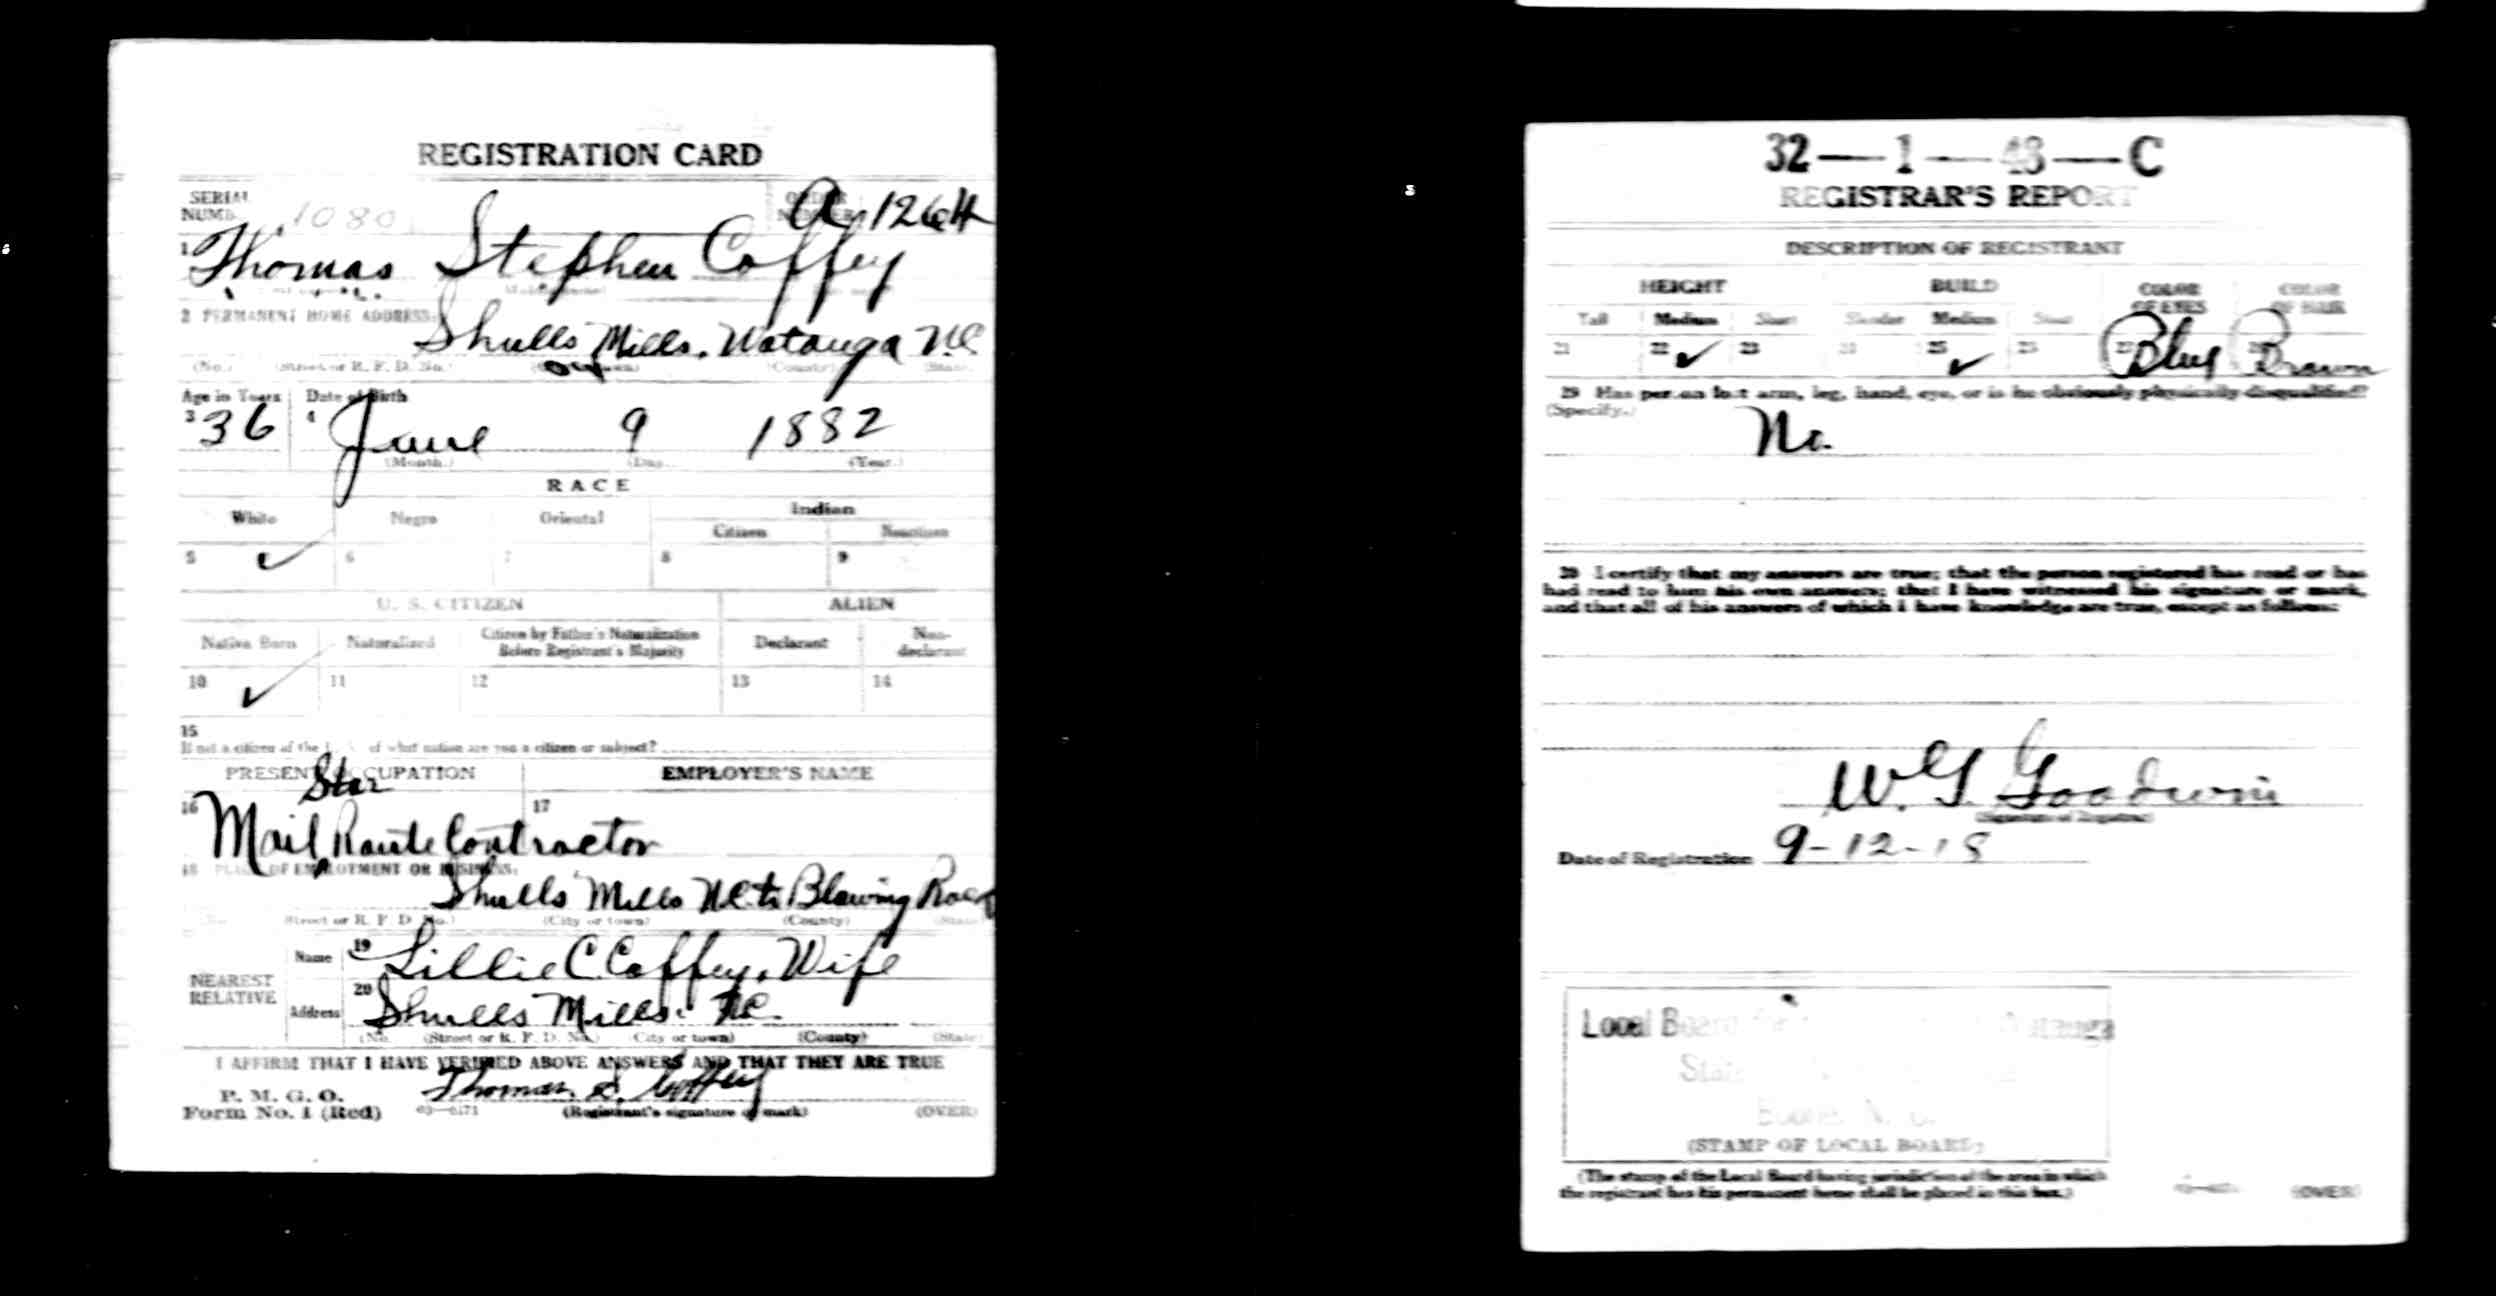 REGISTRATION CARD
SERIAL NUMB 1080 ORDER NUMBER A 1264
1 Thomas Stephen Coffey
2 PERMANENT HOME ADDRESS:
Shulls Mills. Watauga N.C.
(No.) (Street or R. F. D. No.) (City or town) (County) (State)
Age in Years Date of Birth
3 36 4 June 9 1882
(Month.) (Day.) (Year.)
RACE
White Negro Oriental Indian
Citizen Noncitizen
5 ✓ 6 7 8 9
U. S. CITIZEN ALIEN
Native Born Naturalized Citizen by Father's Naturalization Before Registrant's Majority Declarant Non-declarant
10 ✓ 11 12 13 14
15
If not a citizen of the of what nation are you a citizen or subject?
PRESENT OCCUPATION EMPLOYER'S NAME
Star
16 Mail Route Contractor 17
18 PLACE OF EMPLOYMENT OR BUSINESS:
Shulls Mills N.C. to Blowing Rock
(No.) Street or R. F. D. No.) (City or town) (County) (State)
NEAREST RELATIVE
Name 19 Lillie C. Coffey, Wife
Address 20 Shulls Mills. N.C.
(No. (Street or R. F. D. No.) City or town) (County) (State)
I AFFIRM THAT I HAVE VERIFIED ABOVE ANSWERS AND THAT THEY ARE TRUE
P. M. G. O. Thomas S. Coffey
Form No. 1 (Red) 03—6171 (Registrant's signature or mark) (OVER)
32—1—48—C
REGISTRAR'S REPORT
DESCRIPTION OF REGISTRANT
HEIGHT BUILD COLOR OF EYES COLOR OF HAIR
Tall Medium Short Slender Medium Stout
21 22 ✓ 23 24 25 ✓ 26 27 Blue 28 Brown
29 Has person lost arm, leg, hand, eye, or is he obviously physically disqualified?
(Specify.)
No.
30 I certify that my answers are true; that the person registered has read or has
had read to him his own answers; that I have witnessed his signature or mark,
and that all of his answers of which I have knowledge are true, except as follows:
W. G. Goodwin
(Signature of Registrar)
Date of Registration 9-12-18
Local Board for Watauga
State
Boone N. C.
(STAMP OF LOCAL BOARD)
(The stamp of the Local Board having jurisdiction of the area in which
the registrant has his permanent home shall be placed in this box.)
(OVER)